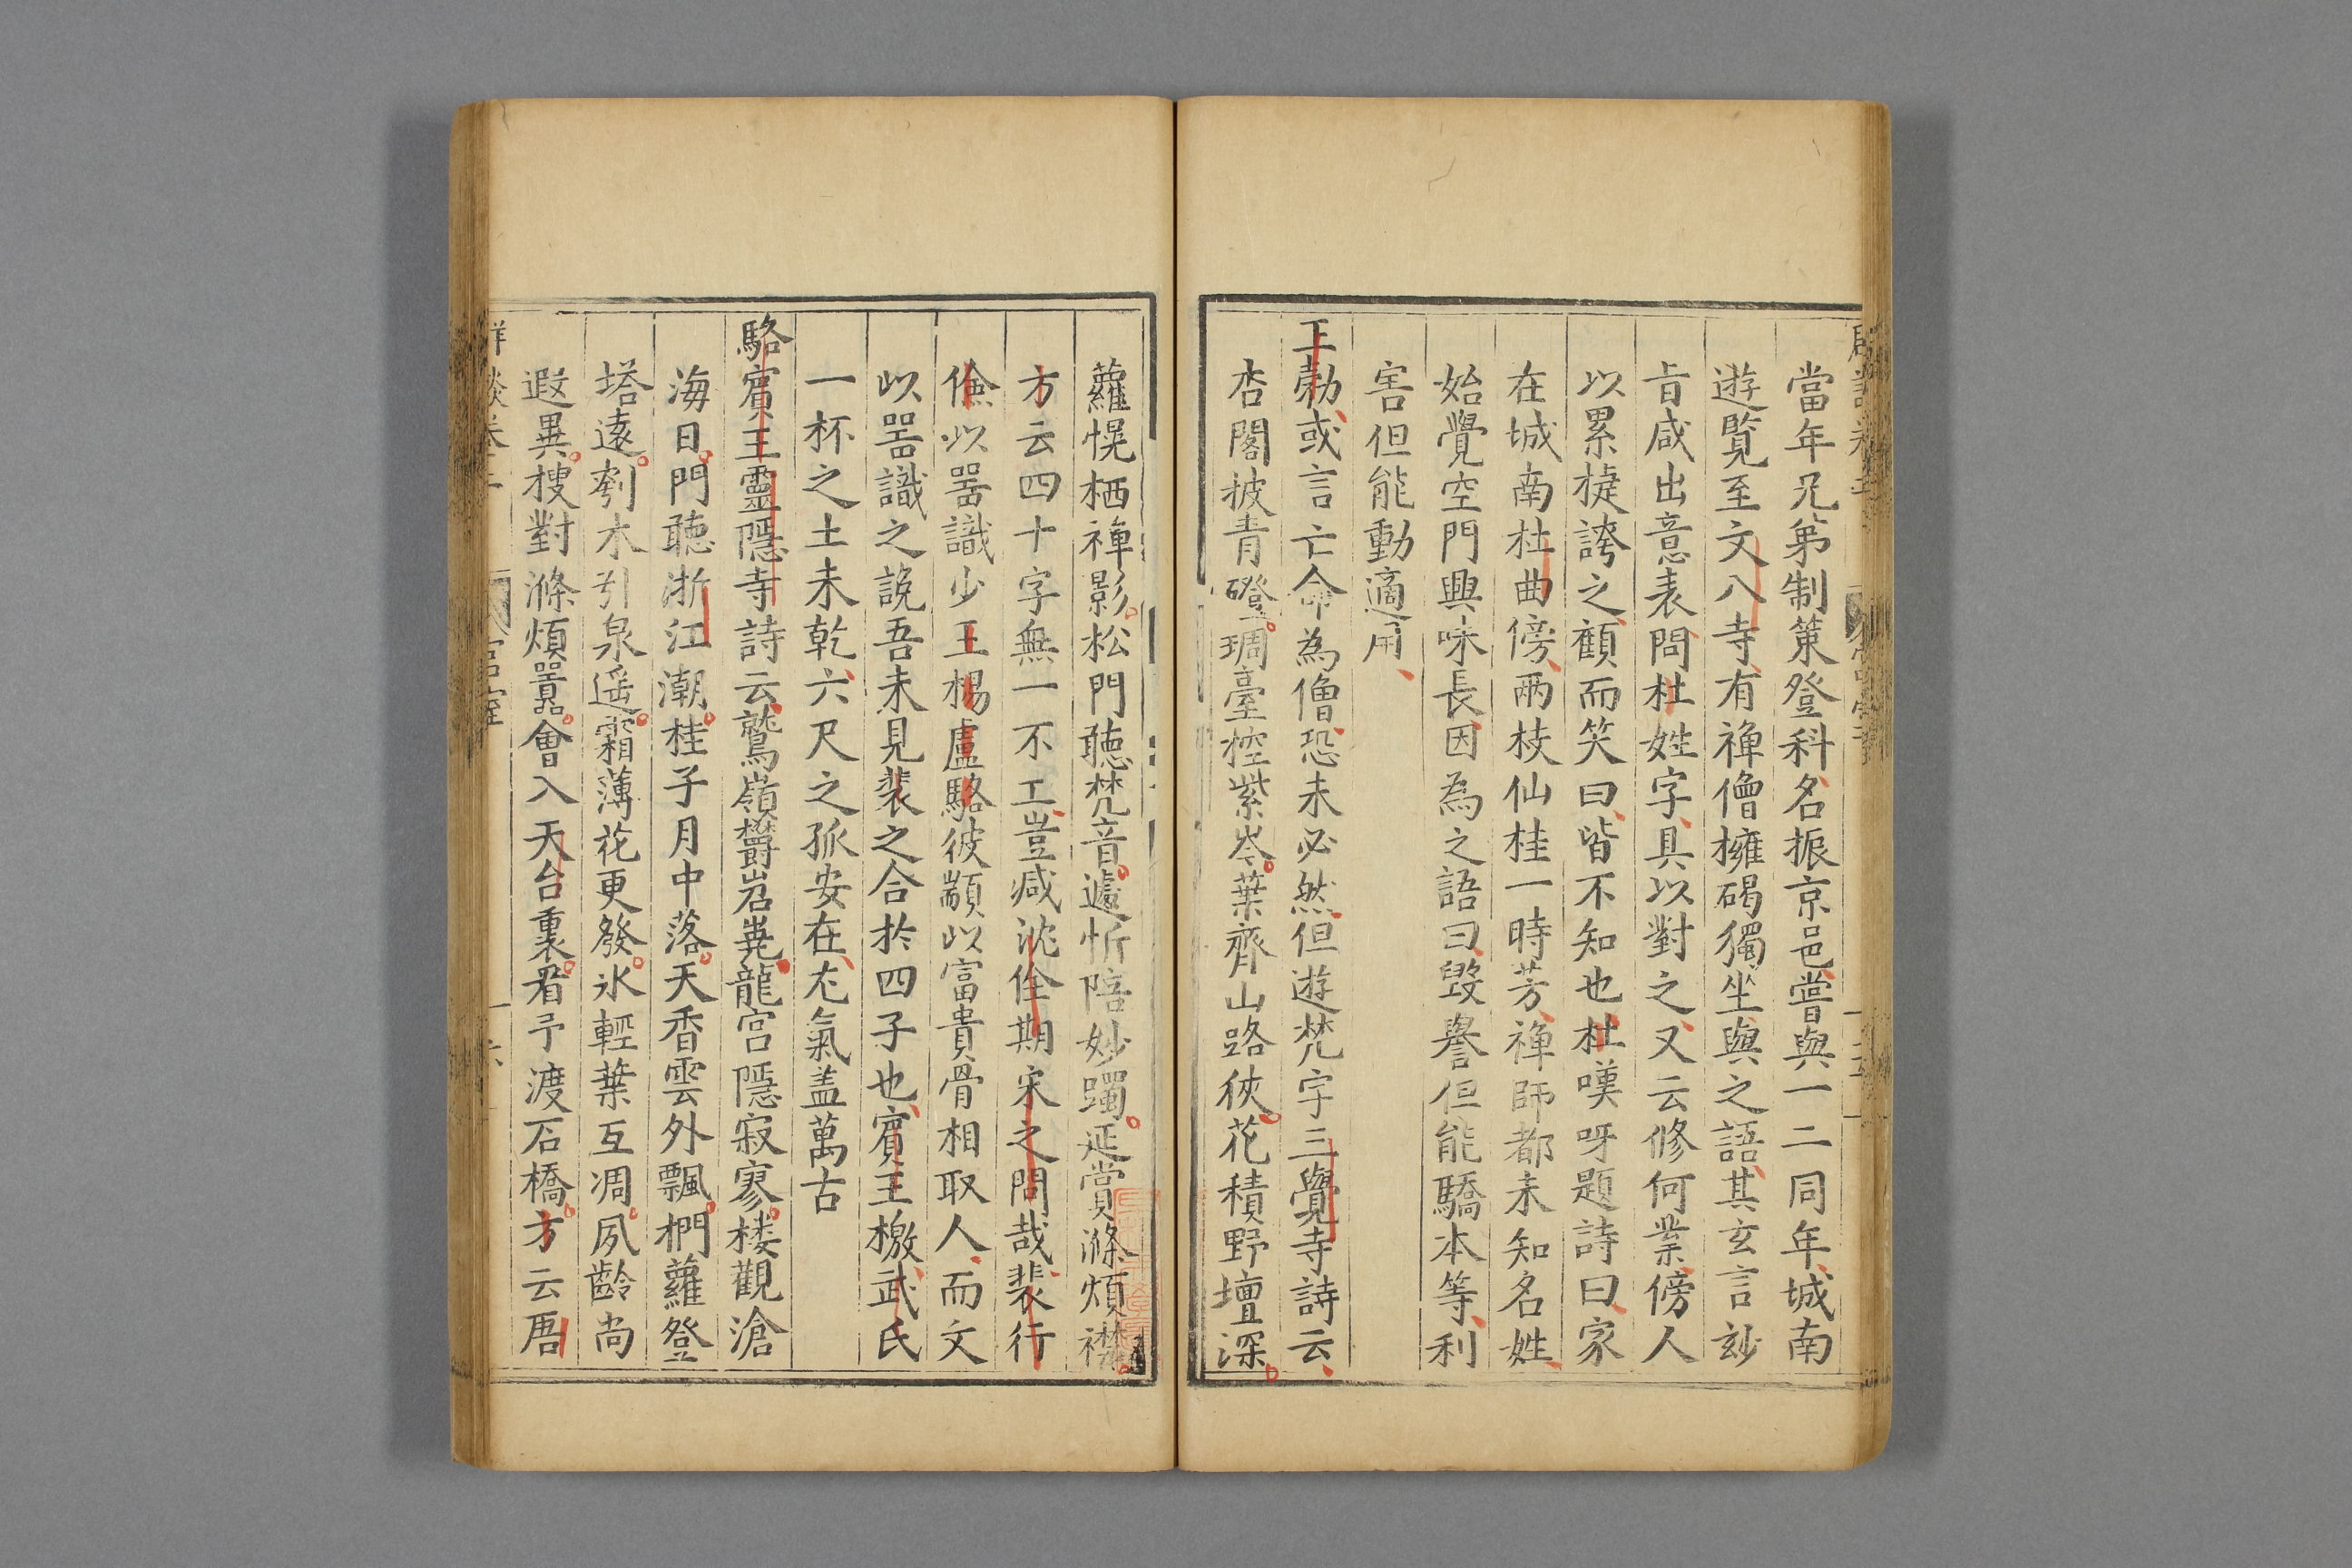 當年兄弟制策登科名振京邑嘗與一二同年城南
遊覧至文八寺有禅僧擁碣獨坐與之語其玄言玅
旨咸出意表問杜姓字具以對之又云修何業傍人
以累㨗誇之顧而笑曰皆不知也杜嘆呀題詩曰家
在城南杜曲傍兩枝仙桂一時芳禅師都未知名姓
始覺空門興味長因為之語曰毀譽但能驕本等利
害但能動適用
王勃或言亡命為僧恐未必然但遊梵宇三覺寺詩云
杏閣披青磴琱臺控紫岑葉齊山路狹花積野壇深
蘿幌栖禅影松門聽梵音遽忻陪妙躅延賞滌煩襟
方云四十字無一不工豈减沈佺期宋之問哉裴行
儉以噐識少王楊盧駱彼顓以富貴骨相取人而文
以噐識之説吾未見裴之合於四子也賓王檄武氏
一杯之土未乾六尺之孤安在尤氣盖萬古
駱賓王靈隱寺詩云鷲嶺欝岧嶤龍宮隱寂寥楼觀滄
海日門聽浙江潮桂子月中落天香雲外飄捫蘿登
塔遠刳木引泉遥霜薄花更發氷輕葉互凋夙齡尚
遐異搜對滌煩嚣會入天台裏看予渡石橋方云唐